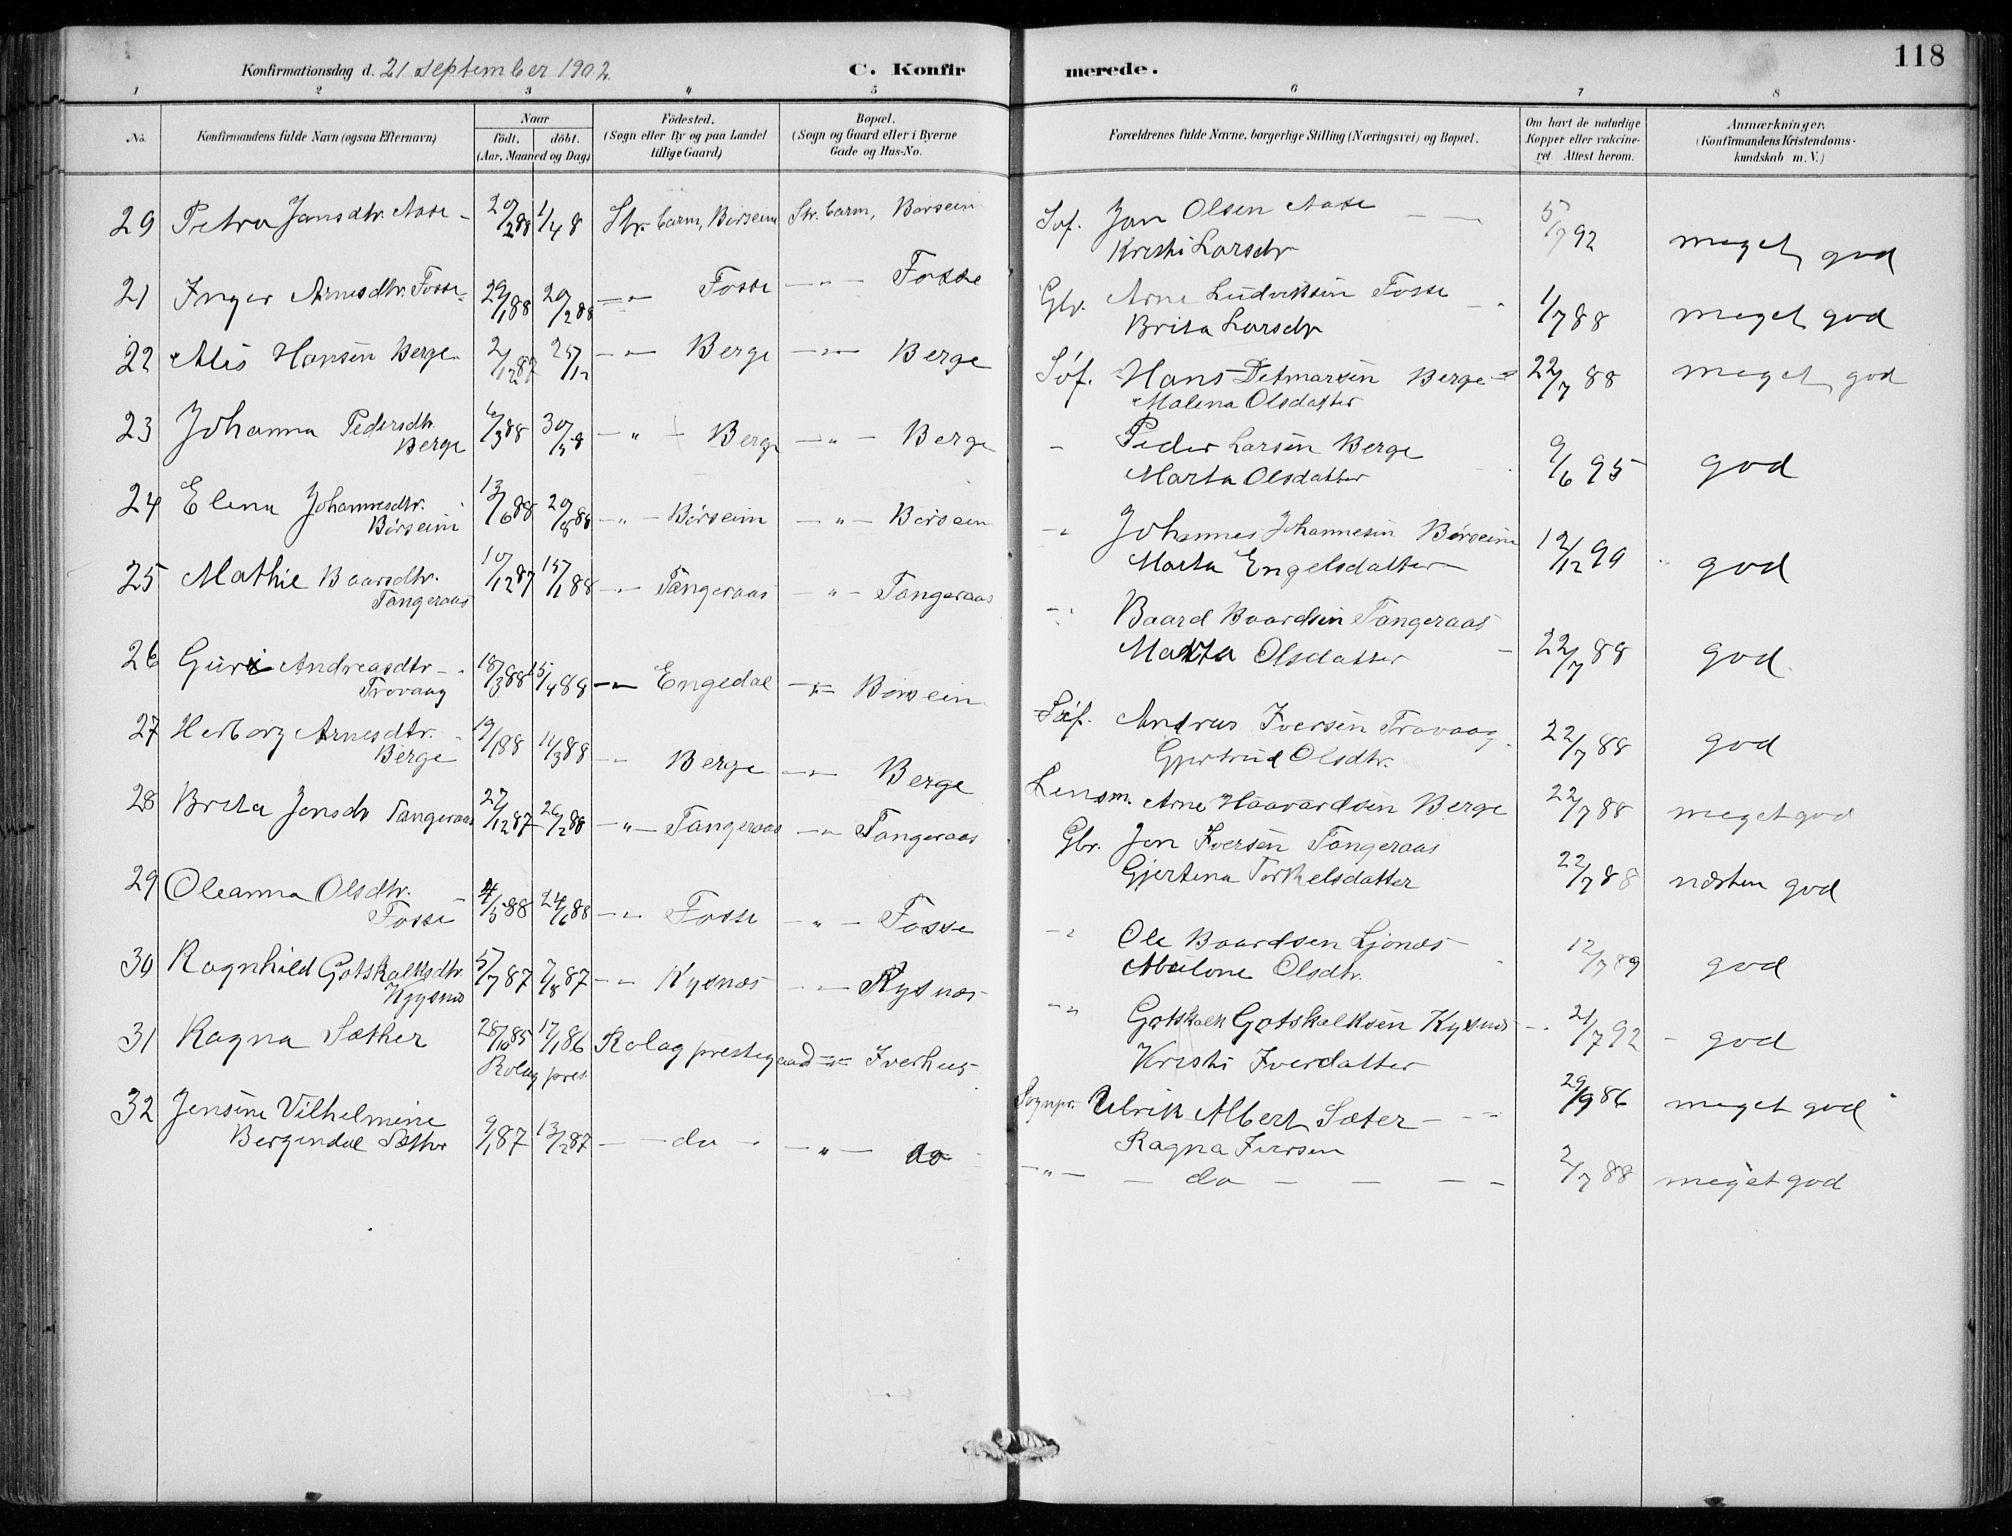 118
Konfirmationsdag d. 21 September 1902. C. Konfirmerede.
1 2 3 4 5 6 7 8
No. Konfirmandens fulde Navn (ogsaa Efternavn) Naar födt. döbt. (Aar, Maaned og Dag) Födested. (Sogn eller By og paa Landet tillige Gaard) Bopæl. (Sogn og Gaard eller i Byerne Gade og Hus-No. Forældrenes fulde Navne, borgerlige Stilling (Næringsvei) og Bopæl. Om havt de naturlige Kopper eller vakcineret. Attest herom. Anmærkninger. (Konfirmandens Kristendomskundskab m. V.)
29 Petra Jansdtr. Aase 20/2 88 1/4 8 Str. barm, Børseim Str. barm, Børseim Sof. Jan Olsen Aase 5/7 92 meget god
Kristi Larsdtr
21 Inger Arnesdtr. Fosse 29/1 88 20/2 88 -"- Fosse -"- Fosse Gbr. Arne Ludviksen Fosse 1/7 88 meget god
Brita Larsdtr
22 Alis Hansen Berge 2/12 87 25/12 -"- Berge -"- Berge Sof. Hans Detmarsen Berge 22/7 88 meget god
Malena Olsdatter
23 Johanna Pedersdtr. 6/3 88 30/5 8 -"- Berge -"- Berge - Peder Larsen Berge 9/6 95 god
Berge Marta Olsdatter
24 Elena Johannesdtr. 13/6 88 20/8 88 -"- Børseim -"- Børseim -"- Johannes Johannesen Børseim 12/12 99 god
Børseim Marta Engelsdatter
25 Mathie Baarsdtr. 10/12 87 15/1 88 -"- Tangeraas -"- Tangeraas -"- Baard Baardsen Tangeraas 22/7 88 god
Tangeraas Marta Olsdatter
26 Guri Andreasdtr 18/3 88 15/4 88 -"- Engedal -"- Børseim Sof. Andreas Iversen Trovaag 22/7 88 god
Trovaag Gjertrud Olsdtr.
27 Herborg Arnesdtr. 19/1 88 11/3 88 -"- Berge -"- Berge Lensm. Arne Haavardsen Berge 22/7 88 meget god
Berge
28 Brita Jonsdtr Tangeraas 27/12 87 26/2 88 -"- Tangeraas -"- Tangeraas Gbr. Jon Iversen Tangeraas 22/7 88 næsten god
Gjertena Torkelsdatter
29 Oleanna Olsdtr. 4/5 88 24/6 88 -"- Fosse -"- Fosse -"- Ole Baardsen Ljonæs 12/7 89 god
Fosse Abelone Olsdtr.
30 Ragnhild Gotskalksdtr. 5/7 87 7/8 87 -"- Kysnæs -"- Kysnæs -"- Gotskalk Gotskalksen Kysnæs 21/7 92 god
Kysnæs Kristi Iverdatter
31 Ragna Sæther 28/10 85 17/1 86 Rolag prestegaard -"- Iverhus Sognpr. Ulrik Albert Sæter 29/9 86 meget god
Rolag prest. Ragna Iversen
32 Jensine Vilhelmine 9/1 87 13/2 87 - do - -"- do -"- do 2/7 88 meget god
Bergendal Sæther